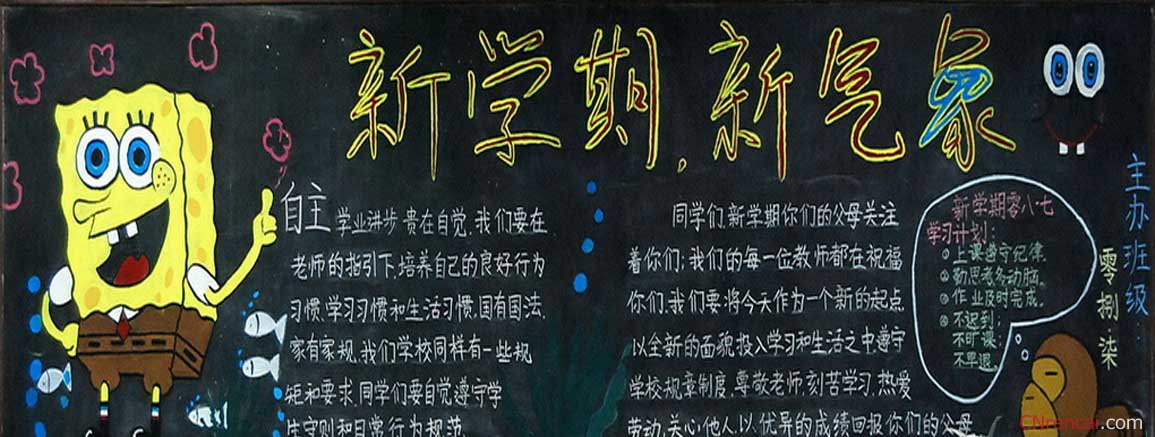 新学期,新气象
自主 学业进步,贵在自觉,我们要在
老师的指引下,培养自己的良好行为
习惯,学习习惯和生活习惯,国有国法,
家有家规,我们学校同样有一些规
矩和要求,同学们要自觉遵守学
生守则和日常行为规范
同学们,新学期你们的父母关注
着你们;我们的每一位教师都在祝福
你们.我们要将今天作为一个新的起点
以全新的面貌投入学习和生活之中,遵守
学校规章制度,尊敬老师,刻苦学习,热爱
劳动,关心他人,以优异的成绩回报你们的父母
新学期零八七
学习计划:
①上课遵守纪律.
②勤思考多动脑.
③作业及时完成.
④不迟到;
不旷课;
不早退.
主办班级
零捌柒
CNrencai.com